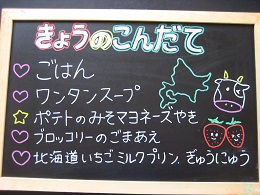 きょうのこんだて
ごはん
ワンタンスープ
ポテトのみそマヨネーズやき
ブロッコリーのごまあえ
北海道いちごミルクプリン、ぎゅうにゅう